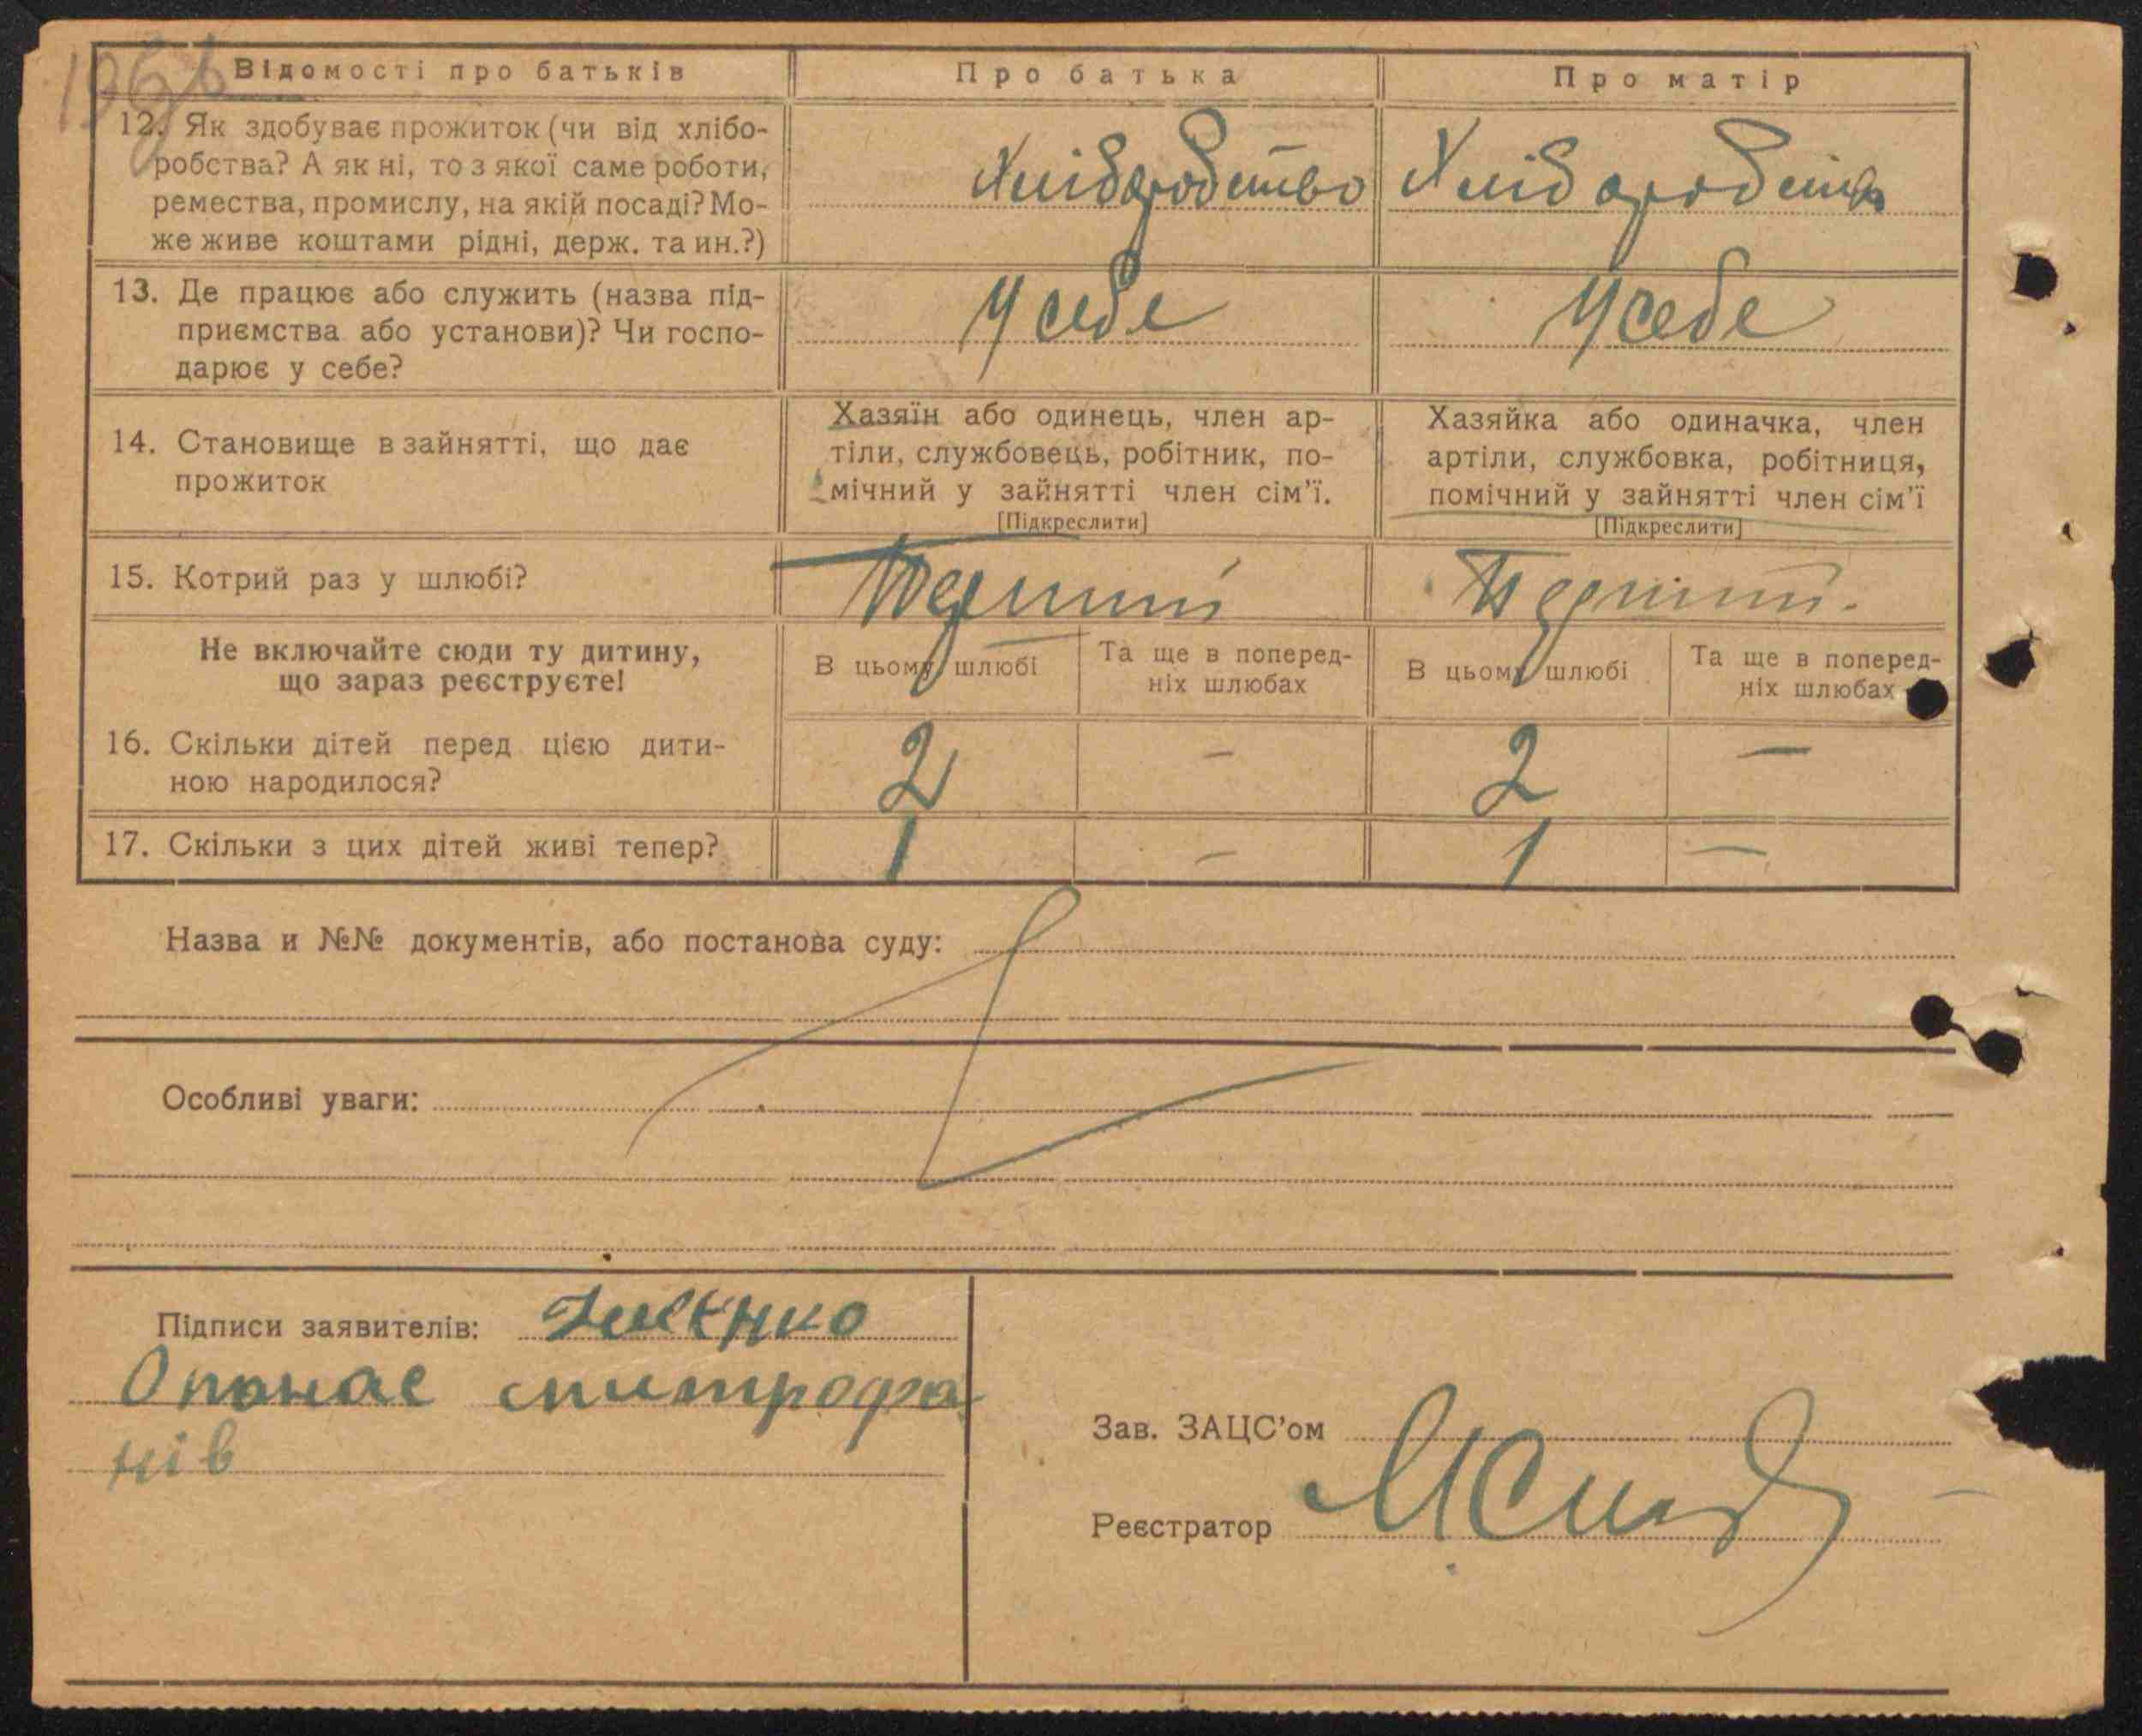 Відомості про батьків Про батька Про матір
12. Як здобуває прожиток (чи від хлібо-
робства? А як ні, то з якої саме роботи,
ремества, промислу, на якій посаді? Мо-
же живе коштами рідні, держ. та ин.?)
Хліборобство Хліборобство
13. Де працює або служить (назва під-
приємства або установи)? Чи госпо-
дарює у себе?
У себе У себе
14. Становище в зайнятті, що дає
прожиток
Хазяїн або одинець, член ар-
тіли, службовець, робітник, по-
мічний у зайнятті член сім'ї.
[Підкреслити]
Хазяйка або одиначка, член
артіли, службовка, робітниця,
помічний у зайнятті член сім'ї
[Підкреслити]
15. Котрий раз у шлюбі? Перший Перший.
Не включайте сюди ту дитину,
що зараз реєструєте!
В цьому шлюбі Та ще в поперед-
ніх шлюбах
В цьому шлюбі Та ще в поперед-
ніх шлюбах
16. Скільки дітей перед цією дити-
ною народилося?
2 — 2 —
17. Скільки з цих дітей живі тепер? 1 — 1 —
Назва и №№ документів, або постанова суду:
Особливі уваги:
Підписи заявителів:
Опанас митрофа
нів
Зав. ЗАЦС'ом
Реєстратор